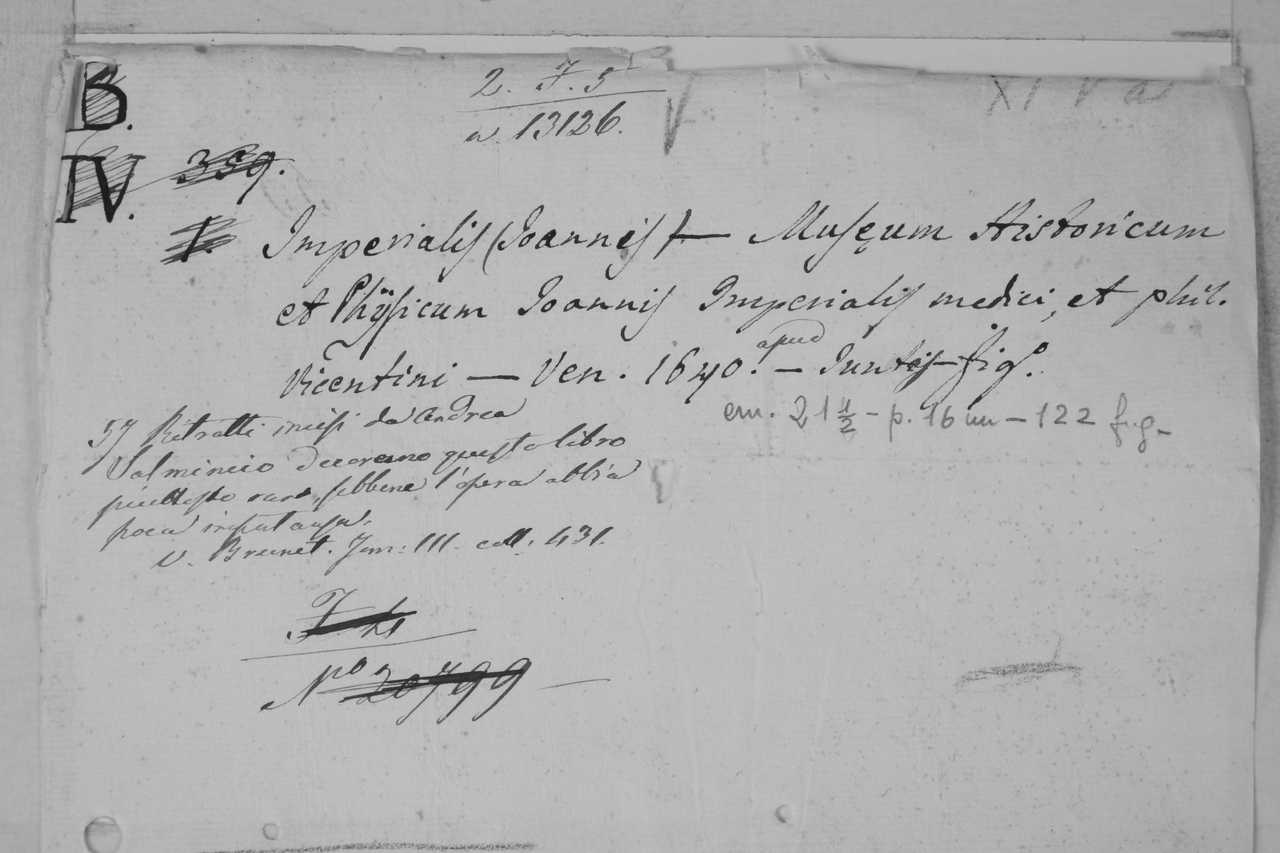 B.
2. F. 5
XI V a
a. 13126.
IV. 359.
1. Imperialis (Joannes) — Musęum Historicum
et Phÿsicum Joannis Imperialis medici, et phil.
Vicentini — Ven. 1640. apud — Juntas fig.º
cm. 21 1/2 - p. 16 nn - 122 fig-
57 Ritratti incisi da Andrea
Salmincio decorano questo libro
piuttosto raro, sebbene l'opera abbia
poca importanza.
V. Brunet. Tom: III. coll. 431.
Nº 20799